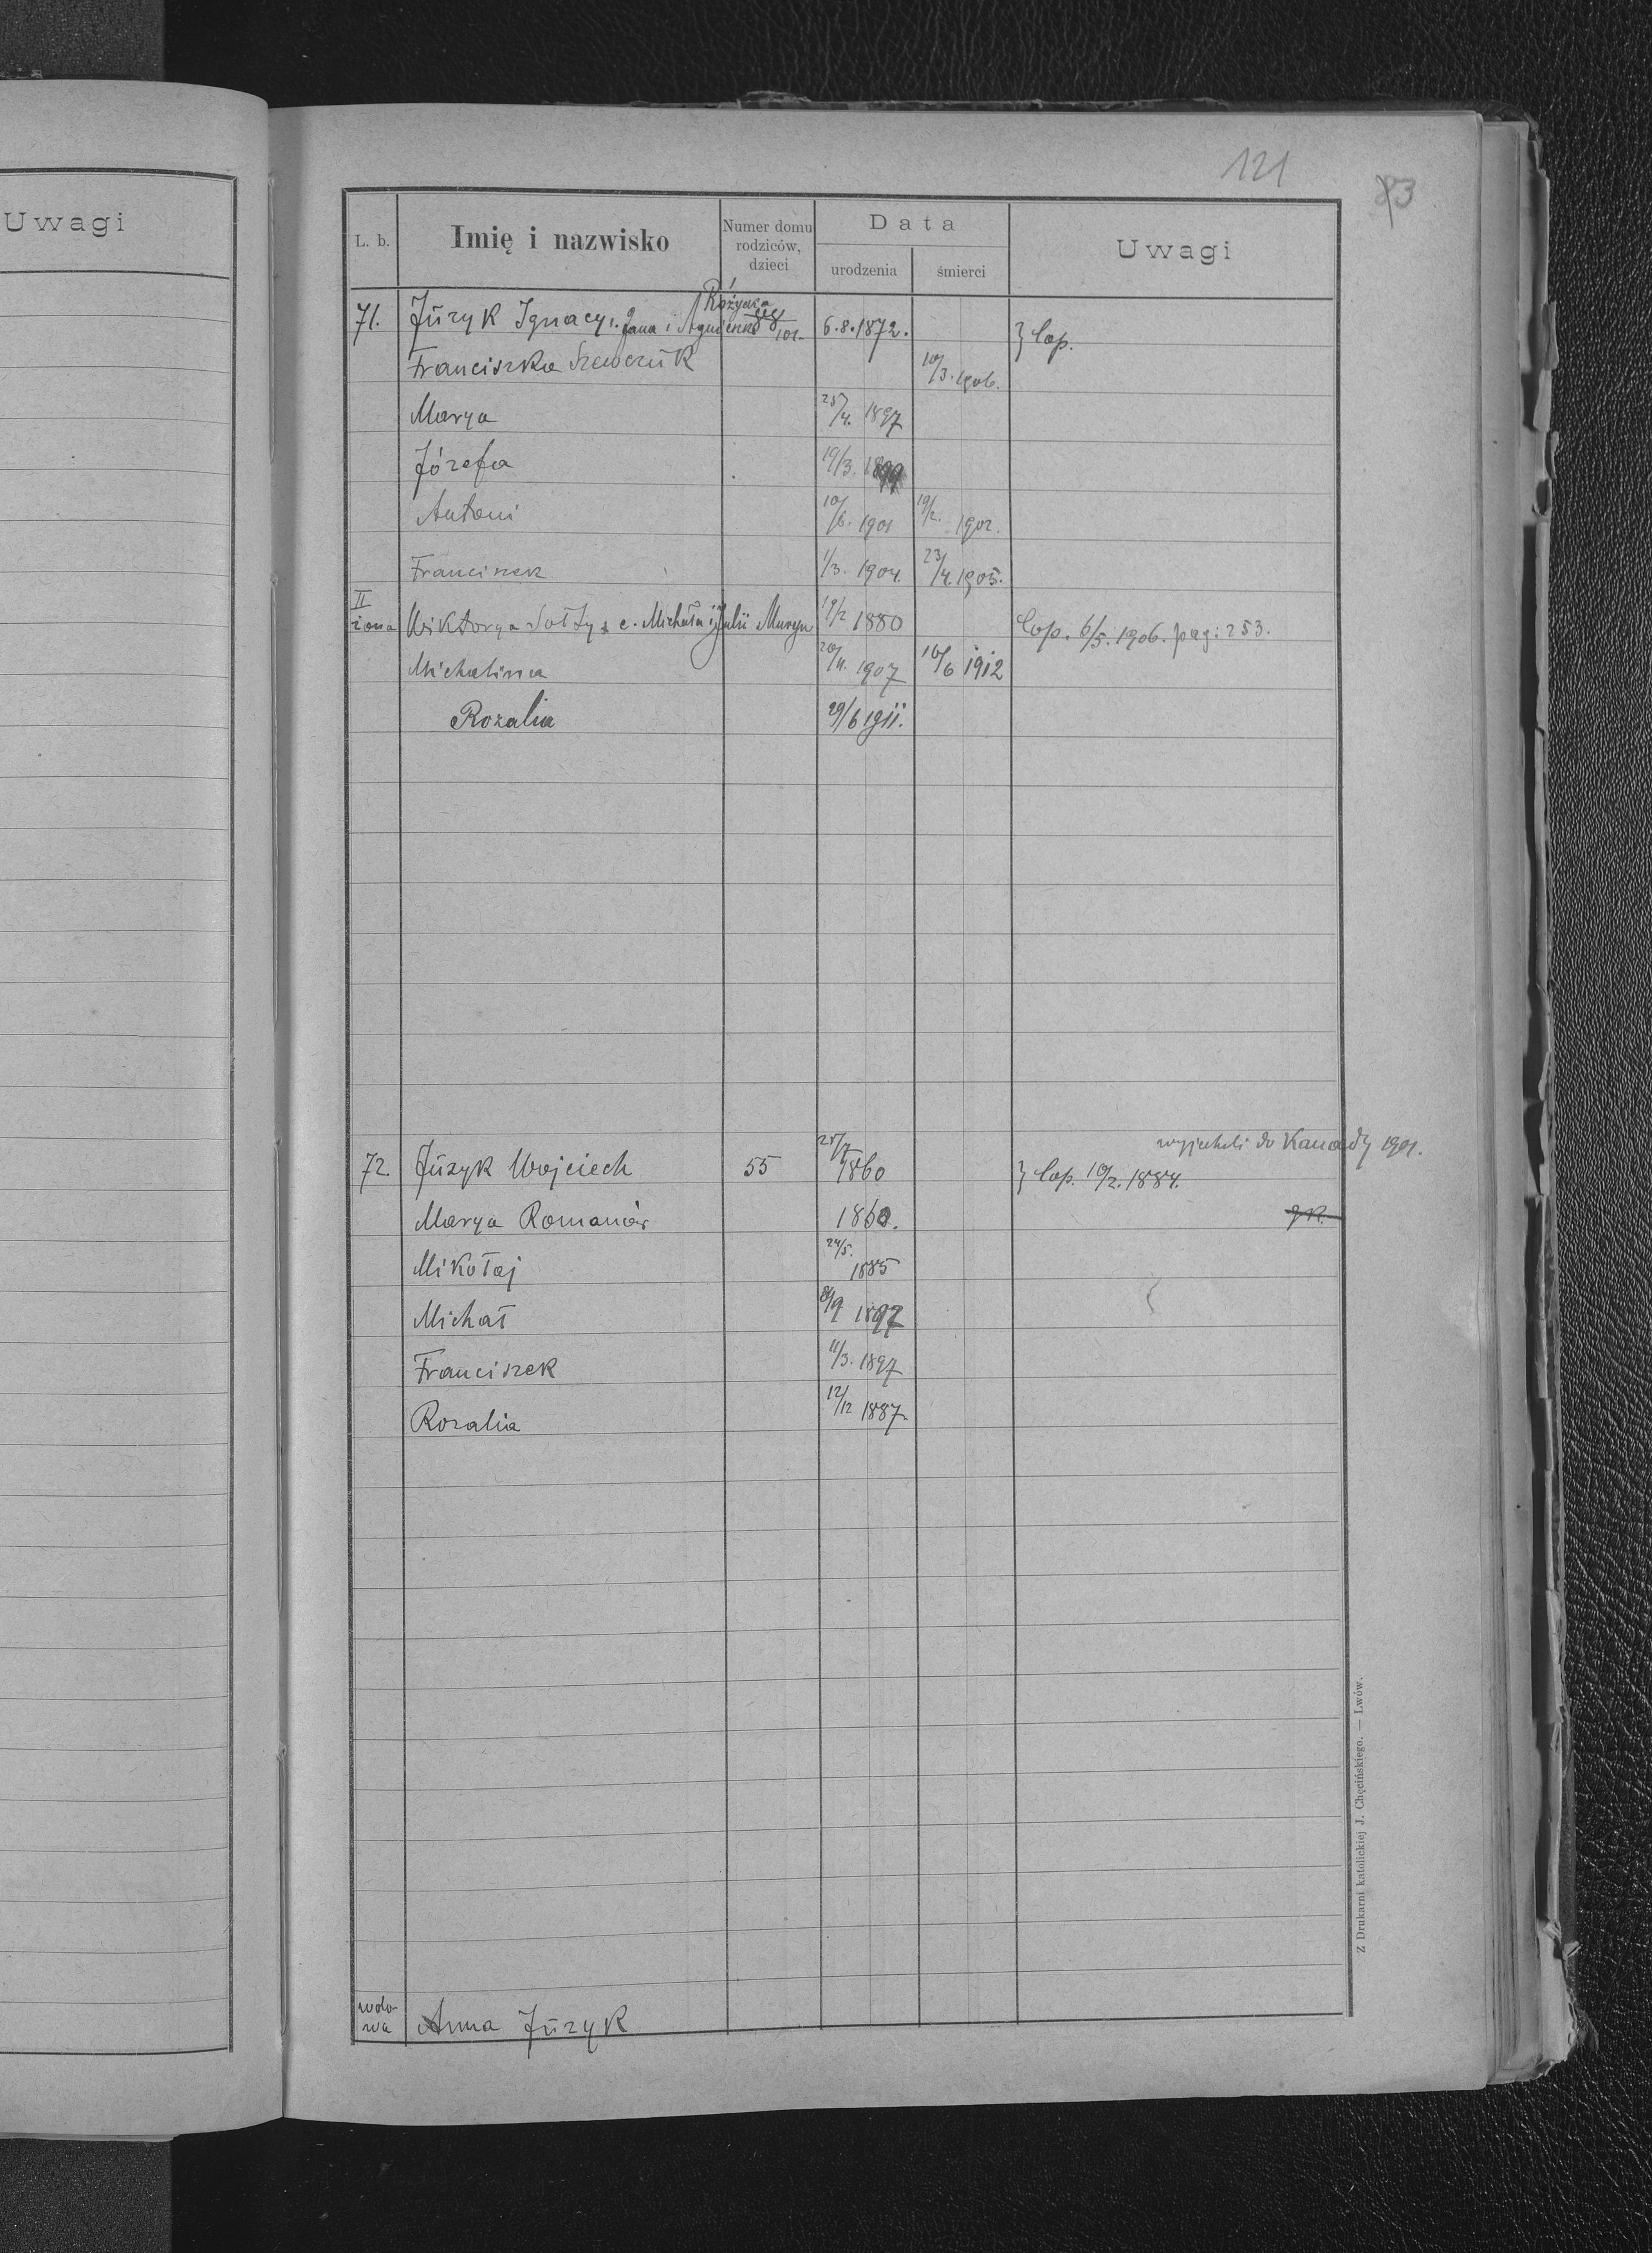 Uwagi
121
83
L. b.
Imię i nazwisko
Numer domu rodziców, dzieci
Data
urodzenia
śmierci
Uwagi
71. Júzyk Ignacy s. Jana i Agnieszki Różycka 88/101. 6.8.1872. } Cop.
Franciszka Szewczúk 10/3.1906.
Marya 25/4. 1897
Józefa 19/3. 1899
Antoni 10/6. 1901 19/2. 1902.
Franciszek 1/3. 1904. 23/4.1905.
II żona Wiktorya Sołtys c. Michała i Julii Muryn 19/2 1880 Cop. 6/5. 1906. pag: 253.
Michalina 20/11. 1907 10/6 1912
Rozalia 29/6 1911.
wyjechali do Kanady 1901.
72. Júzyk Wojciech 55 25/7 1860 } Cop. 10/2. 1884.
Marya Romanów 1860.
Mikołaj 24/5. 1885
Michał 8/9 1897
Franciszek 11/3. 1897
Rozalia 12/12 1887
wdowa Anna Júzyk
Z Drukarni katolickiej J. Chęcińskiego. — Lwów.